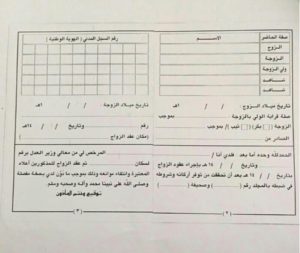 صفة الحاضر
الاســـم
رقم السجل المدني ( الهوية الوطنية )
الزوج
الزوجة
ولي الزوجة
شاهد
شاهد
تاريخ ميلاد الزوج : / / ١هـ
تاريخ ميلاد الزوجة : / / ١هـ
صفة قرابة الولي بالزوجة
الزوجة ( ) بكر ( ) ثيب / بموجب
رقم وتاريخ / / ١٤هـ
الصادر من
( مكان عقد الزواج )
الحمد لله وحده أما بعد فلدي أنا /
المرخص لي من معالي وزير العدل برقم
وتاريخ / / ١٤هـ بإجراء عقود الزواج
لسكان تم عقد الزواج للمذكورين أعلاه
بعد أن تحققت من توفر أركانه وشروطه
المعتبرة وانتفاء موانعه وذلك بموجب ما دون لدي بصفة مفصلة
في ضبطه بالمجلد رقم ( ) وصحيفة ( )
وصلى الله على نبينا محمد وآله وصحبه وسلم
توقيع وختم المأذون
( ٢ )
( ٣ )